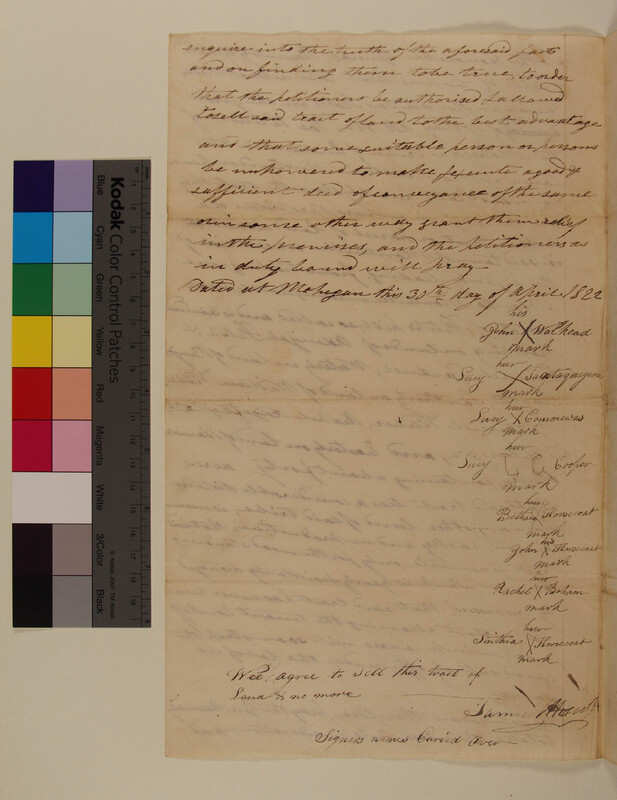 enquire into the truth of the aforesaid facts
and on finding them to be true, to order
that the petitioners be authorised & allowed
to sell said tract of land to the best advantage
and that some suitable person or persons
be empowered to make & execute a good &
sufficient deed of conveyance of the same
or in some other way grant them relief
in the premises, and the petitioners as
in duty bound will pray
Dated at Mohegan this 30th day of April 1822
his
John X Walkead
mark
her
Lucy X
mark
her
Lucy X Commewas
mark
her
Lucy Cooper
mark
her
Bethiah X Hoscoat
mark
his
John X Hoscoat
mark
her
Rachel X Boham
mark
her
Sinthia X Hoscoat
mark
Wee, agree to sell this tract of
Land & no more
Signers names Caried Over
Kodak Color Control Patches
Blue
Cyan
Green
Yellow
Red
Magenta
White
3/Color
Black